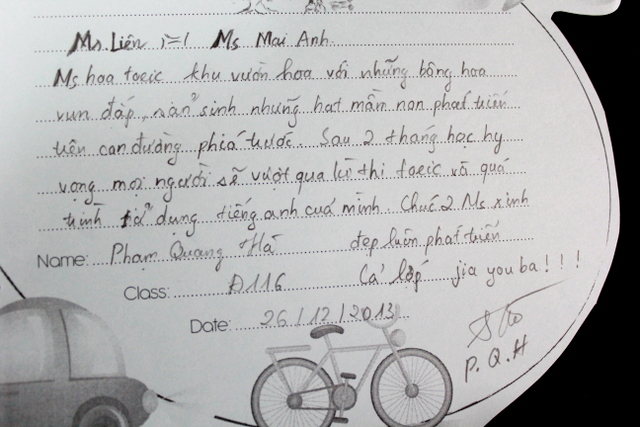 Ms. Liên Ms Mai Anh.
Ms hoa toeic khu vườn hoa với những bông hoa
vun đắp, sản sinh những hạt mầm non phát triển
trên con đường phía trước. Sau 2 tháng học hy
vọng mọi người sẽ vượt qua kì thi toeic và quá
trình sử dụng tiếng anh của mình. Chúc 2 Ms xinh
đẹp luôn phát triển
Name: Phạm Quang Hà
Class: A116 Cả lớp jia you ba!!!
Date: 26/12/2013
P.Q.H